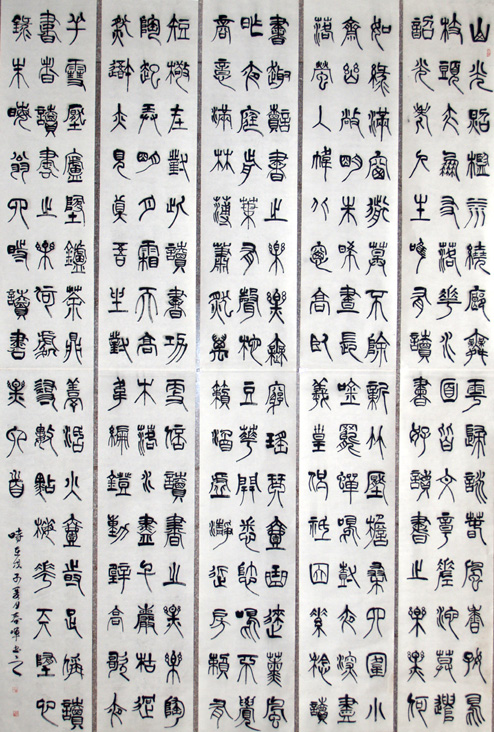 山光照檻水繞廊舞雩歸詠春風香好鳥
枝頭亦朋友落花水面皆文章蹉跎莫遣
韶光老人生唯有讀書好讀書之樂樂何
如綠滿窗前草不除新竹壓檐桑四圍小
齋幽敞明朱曦晝長吟罷蟬鳴樹夜深燼
落螢入幃北窗高臥羲皇侶祗因素稔讀
書趣讀書之樂樂無窮瑤琴壹曲來薰風
昨夜庭前葉有聲籬豆花開悉帥鳴不覺
商意滿林薄蕭然萬籟涵虛瀞近房賴有
短檠在對此讀書功更倍讀書之樂樂陶
陶起弄明月霜天高木落水盡千崖枯迥
然吾亦見真吾坐對韋編鐙動壁高歌夜
半雪壓廬地鑪茶鼎烹活火壹清足稱讀
書者讀書之樂何處尋數點梅花天地心
錄朱晦翁四時讀書樂四首
時在戊子夏月春暉書之